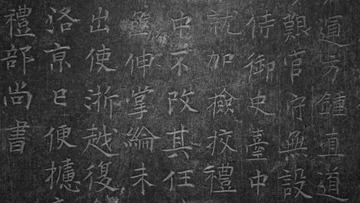 鍾直道
艱官守無設
侍御史臺中
就加檢校禮
不改其任
伸掌綸未
出使浙越復
洛京已便
禮部尚書